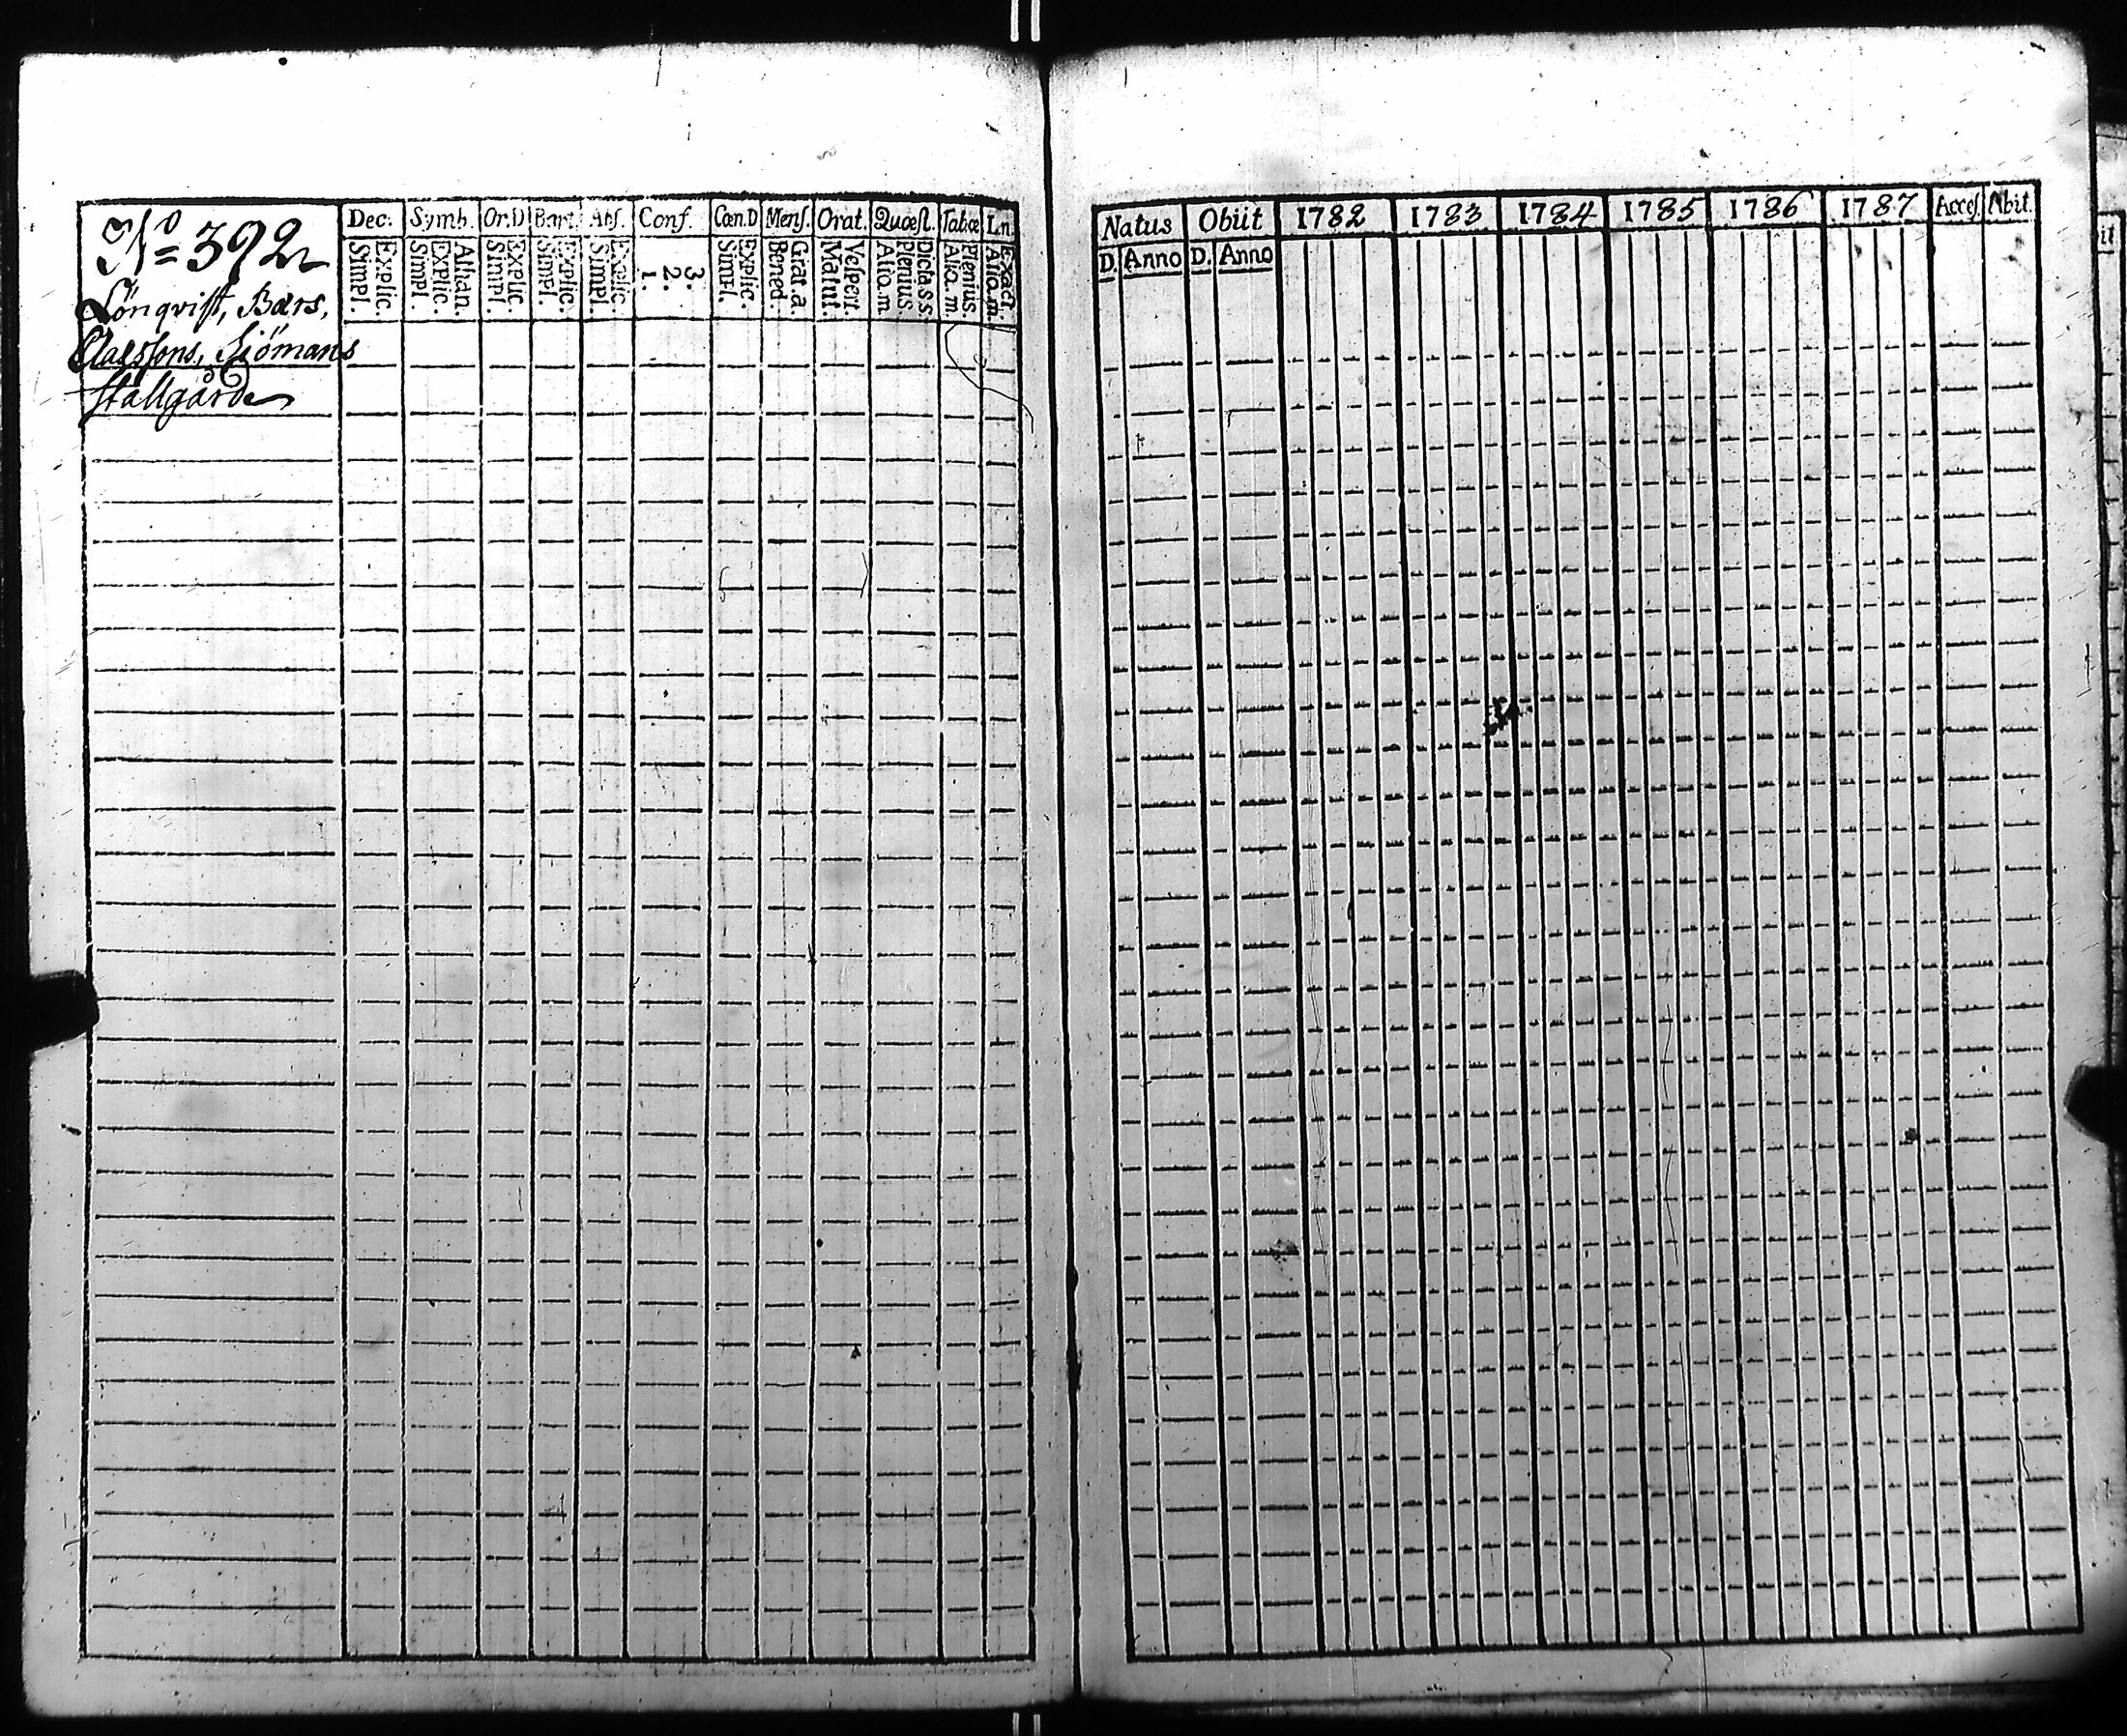 Nº 392
Lönqvist, Bærs,
Claessons, Siömans
stallgårde
Dec. Symb. Or.D Bapt. Abs. Conf. Cœn.D Mens. Orat. Quæst. Tabœ L.n.
Explic. Simpl.
Athan. Explic. Simpl.
Explic. Simpl.
Explic. Simpl.
Explic. Simpl.
3. 2. 1.
Explic. Simpl.
Grat.a. Bened.
Vespert. Matut.
Dicta s s Plenius. Alio.m
Plenius Alio.m.
Exact. Alio.m.
Natus Obiit 1782 1783 1784 1785 1786 1787 Acces. Abit.
D. Anno D. Anno